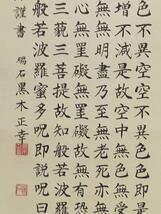 色不異空空不異色色即是
增不減是故空中無色無
無明盡乃至無老死亦無
心無罣礙無罣礙故無有恐
三藐三菩提故知般若波
般若波羅蜜多呪即説呪曰
謹書 碣石黒木正幸